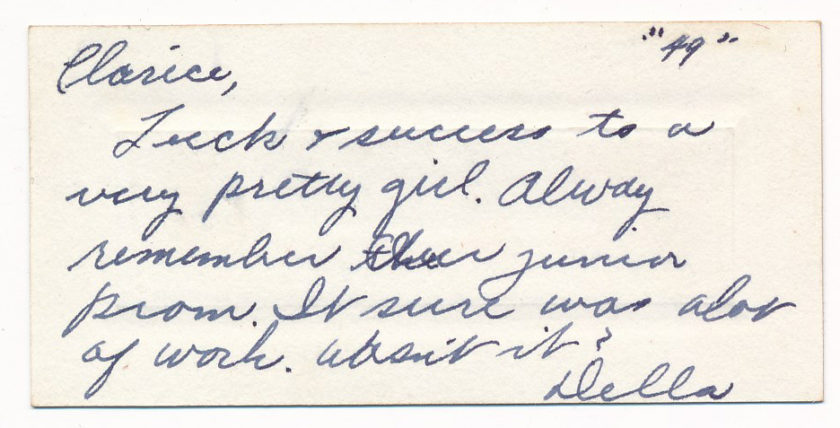 "49"
Clarice,
Luck & success to a
very pretty girl. Alway
remember our junior
prom. It sure was alot
of work. wasn't it?
Della